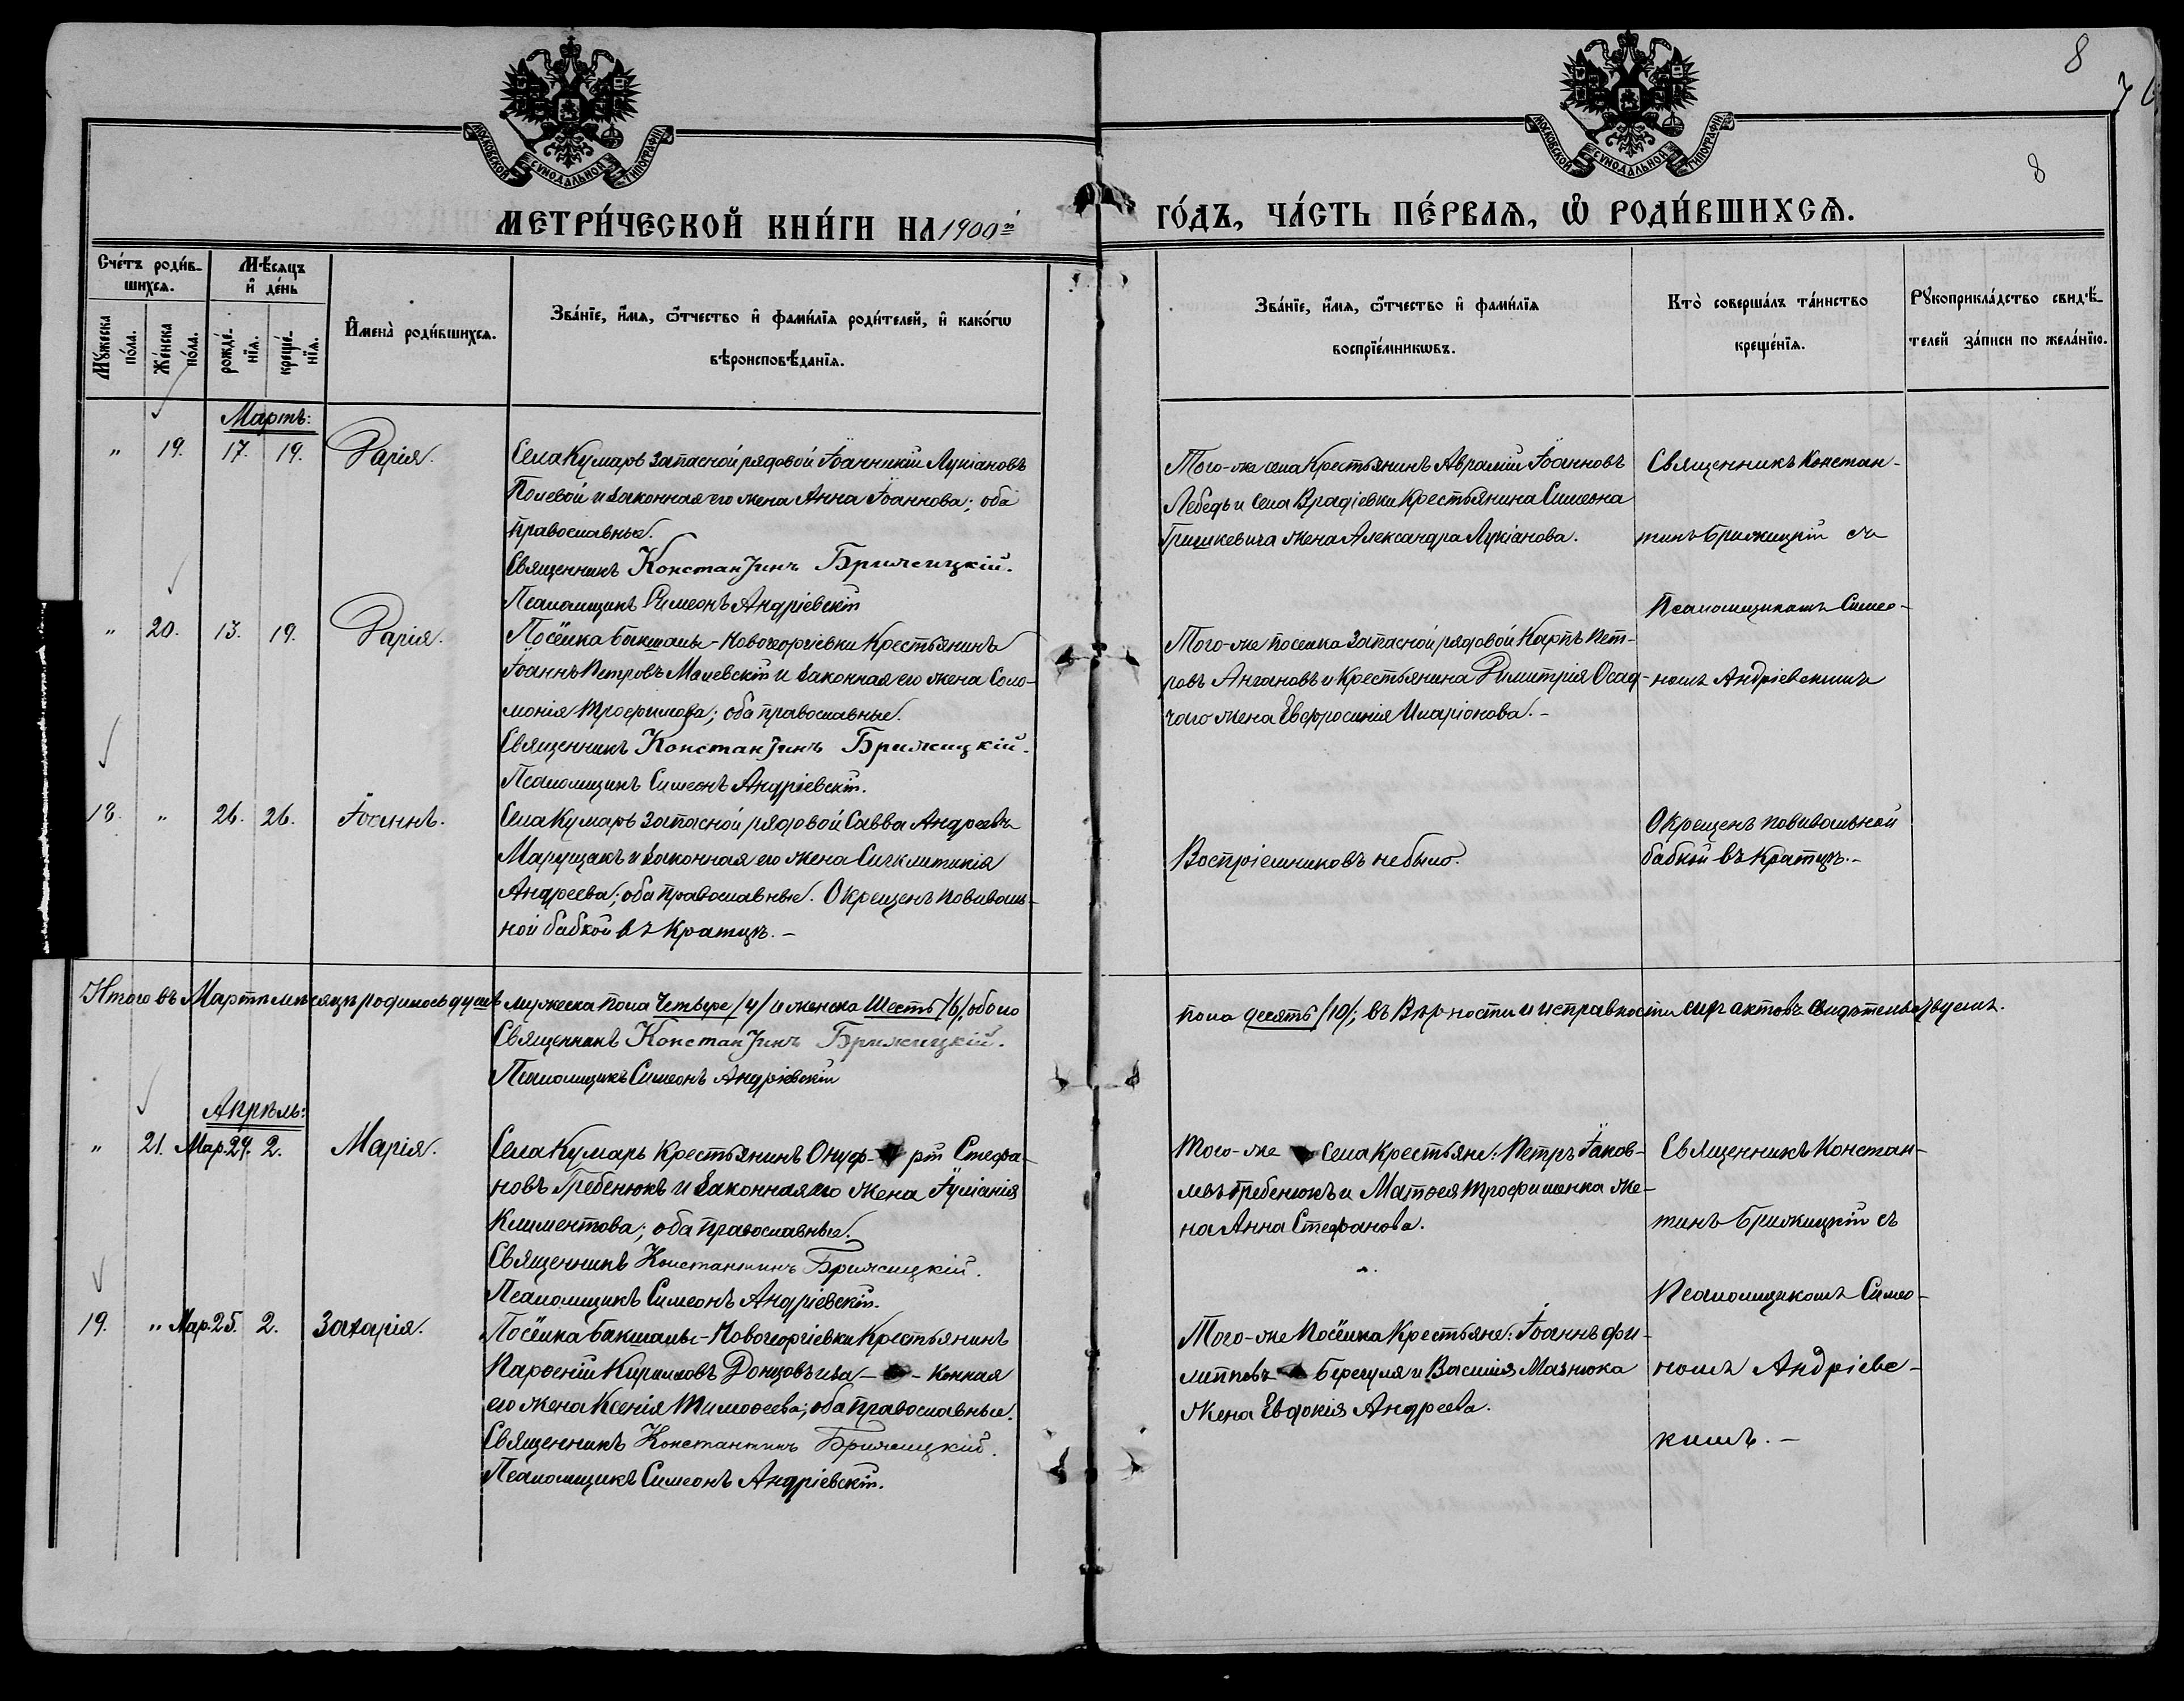 МОСКОВСКОЙ СѴНОДАЛЬНОЙ ТИПОГРАФІИ
МОСКОВСКОЙ СѴНОДАЛЬНОЙ ТИПОГРАФІИ
8
8
МЕТРИ́ЧЕСКОЙ КНИ́ГИ НА 1900й
ГО́ДЪ, ЧА́СТЬ ПЕ́РВАѦ, Ѡ РОДИ́ВШИХСѦ.
Сче́тъ роди́в-
шихсѧ.
Мꙋжеска по́ла.
Же́нска по́ла.
Мѣ́сѧцъ
и҆ де́нь
рожде́-
нїѧ.
креще́-
нїѧ.
И҆мена̀ роди́вшихсѧ.
Зва́нїе, и҆́мѧ, ѻ҆́тчество и҆ фами́лїѧ роди́телей, и҆ како́гѡ
вѣроисповѣ́данїѧ.
Зва́нїе, и҆́мѧ, ѻ҆́тчество и҆ фами́лїѧ
воспрїе́мникѡвъ.
Кто̀ соверша́лъ та́инство
креще́нїѧ.
Рꙋкоприкла́дство свидѣ́-
телей за́писи по жела́нїю.
Мартъ:
" 19. 17. 19. Дарія.
Села Кумаръ запасной рядовой Іоанникій Лукіановъ
Полевой и законная его жена Анна Іоаннова; оба
православные.
Священникъ Константинъ Брижицкій.
Псаломщикъ Симеонъ Андріевскій
Того-же села Крестьянинъ Аврамій Іоанновъ
Лебедь и села Врадіевки Крестьянина Симеона
Гришкевича жена Александра Лукіанова.
Священникъ Констан-
тинъ Брижицкій съ
Псаломщикомъ Симео-
номъ Андріевскимъ
" 20. 13. 19. Дарія.
Посёлка Бакшалы-Новогеоргіевки Крестьянинъ
Іоаннъ Петровъ Малевскій и законная его жена Соло-
монія Трофимова; оба православные.
Священникъ Константинъ Брижицкій.
Псаломщикъ Симеонъ Андріевскій.
Того-же поселка запасной рядовой Карпъ Пет-
ровъ и Крестьянина Димитрія Осад-
чаго жена Евфросинія Иларіонова.-
18. " 26. 26. Іоаннъ.
Села Кумаръ запасной рядовой Савва Андреевъ
Марущакъ и законная его жена Сигклитикія
Андреева; оба православные. Окрещенъ повиваль-
ной бабкой въ Кратцѣ.-
Воспріемниковъ не было.
Окрещенъ повивальной
бабкой въ Кратцѣ.-
Итого въ Мартѣ мѣсяцѣ родилось душъ мужеска пола Четыре /4/ и женска Шесть /6/, обоего
пола десять /10/; въ Вѣрности и исправности сихъ актовъ свидѣтельствуемъ.
Священникъ Константинъ Брижицкій.
Псаломщикъ Симеонъ Андріевскій
Апрѣль:
" 21. Мар.24. 2. Марія.
Села Кумаръ Крестьянинъ Онуф- рій Стефа-
новъ Гребенюкъ и законная его жена Іуліанія
Климентова; оба православные.
Священникъ Константинъ Брижицкій.
Псаломщикъ Симеонъ Андріевскій.
Того-же села Крестьяне: Петръ Іаков-
левъ Гребенюкъ и Матѳея Трофименка же-
на Анна Стефанова.
Священникъ Констан-
тинъ Брижицкій съ
Псаломщикомъ Симео-
номъ Андріевс-
кимъ.-
19. " Мар.25. 2. Захарія.
Посёлка Бакшалы-Новогеоргіевки Крестьянинъ
Парѳеній Кирилловъ Донцовъ и за- - конная
его жена Ксенія Тимоѳеева; оба православные.
Священникъ Константинъ Брижицкій.
Псаломщикъ Симеонъ Андріевскій.
Того-же Посёлка Крестьяне: Іоаннъ Фи-
липповъ и Василія Мазнюка
жена Евдокія Андреева.